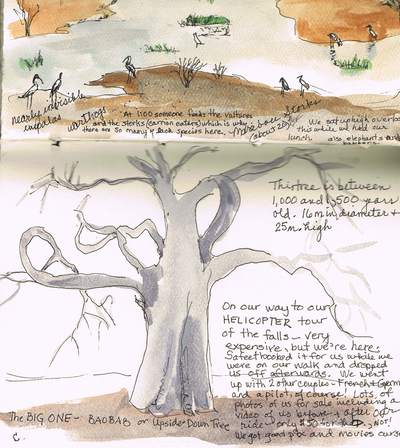 nearly invisible
impalas
warthogs
"At 1100 someone feeds the vultures
and the storks (carrion eaters) which is why
there are so many of each species here.
Marabou storks
about 25!
We sat up high overlooking
this while we held our
lunch. also elephants and
This tree is between
1,000 and 1,500 years
old. 16m in diameter +
25m high
On our way to our
HELICOPTER tour
of the falls - very
expensive, but we're here.
So feet booked it for us while we
were on our walk and dropped
us off afterwards. We went
up with 2 other couples - French + German
and a pilot, of course! Lots of
photos of us for sale including a
video of us before + after our
ride - only $50 for the D. NOT!
We got good pics and movies ours
The BIG ONE - BAOBAB or Upside Down Tree
C.